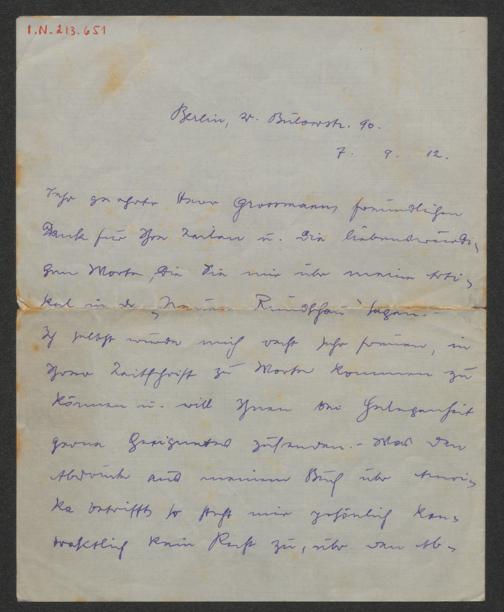 I.N. 213.651
Berlin, W. Bülowstr. 90.
7. 9. 12.
Sehr geehrter Herr Grossmann, freundlichen
Dank für Ihre Zeilen u. die liebenswürdi-
gen Worte, die Sie mir über meine Arti-
kel in der „Neuen Rundschau" sagen. –
Ich selbst würde mich recht sehr freuen, in
Ihrer Zeitschrift zu Worte kommen zu
können u. will Ihnen bei Gelegenheit
gerne Geeignetes zusenden. – Was den
Abdruck aus meinem Buch über Ameri-
ka betrifft, so steht mir persönlich kon-
traktlich kein Recht zu, über den Ab-